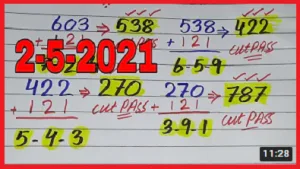 603 ⇒ 538
538 → 422
+ 121
2-5-2021
cut PASS
6-5-9
422 ⇒ 270
270 → 787
+ 121
cut PASS
+ 121
cut PASS
5-4-3
3-9-1
11:28